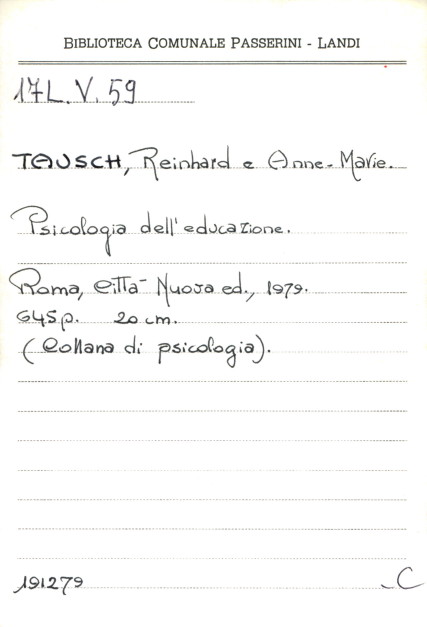 BIBLIOTECA COMUNALE PASSERINI - LANDI
17L.V. 59
TAUSCH, Reinhard e Anne-Marie.
Psicologia dell'educazione.
Roma, Città Nuova ed., 1979.
645p. 20 cm.
(Collana di psicologia).
191279 _C